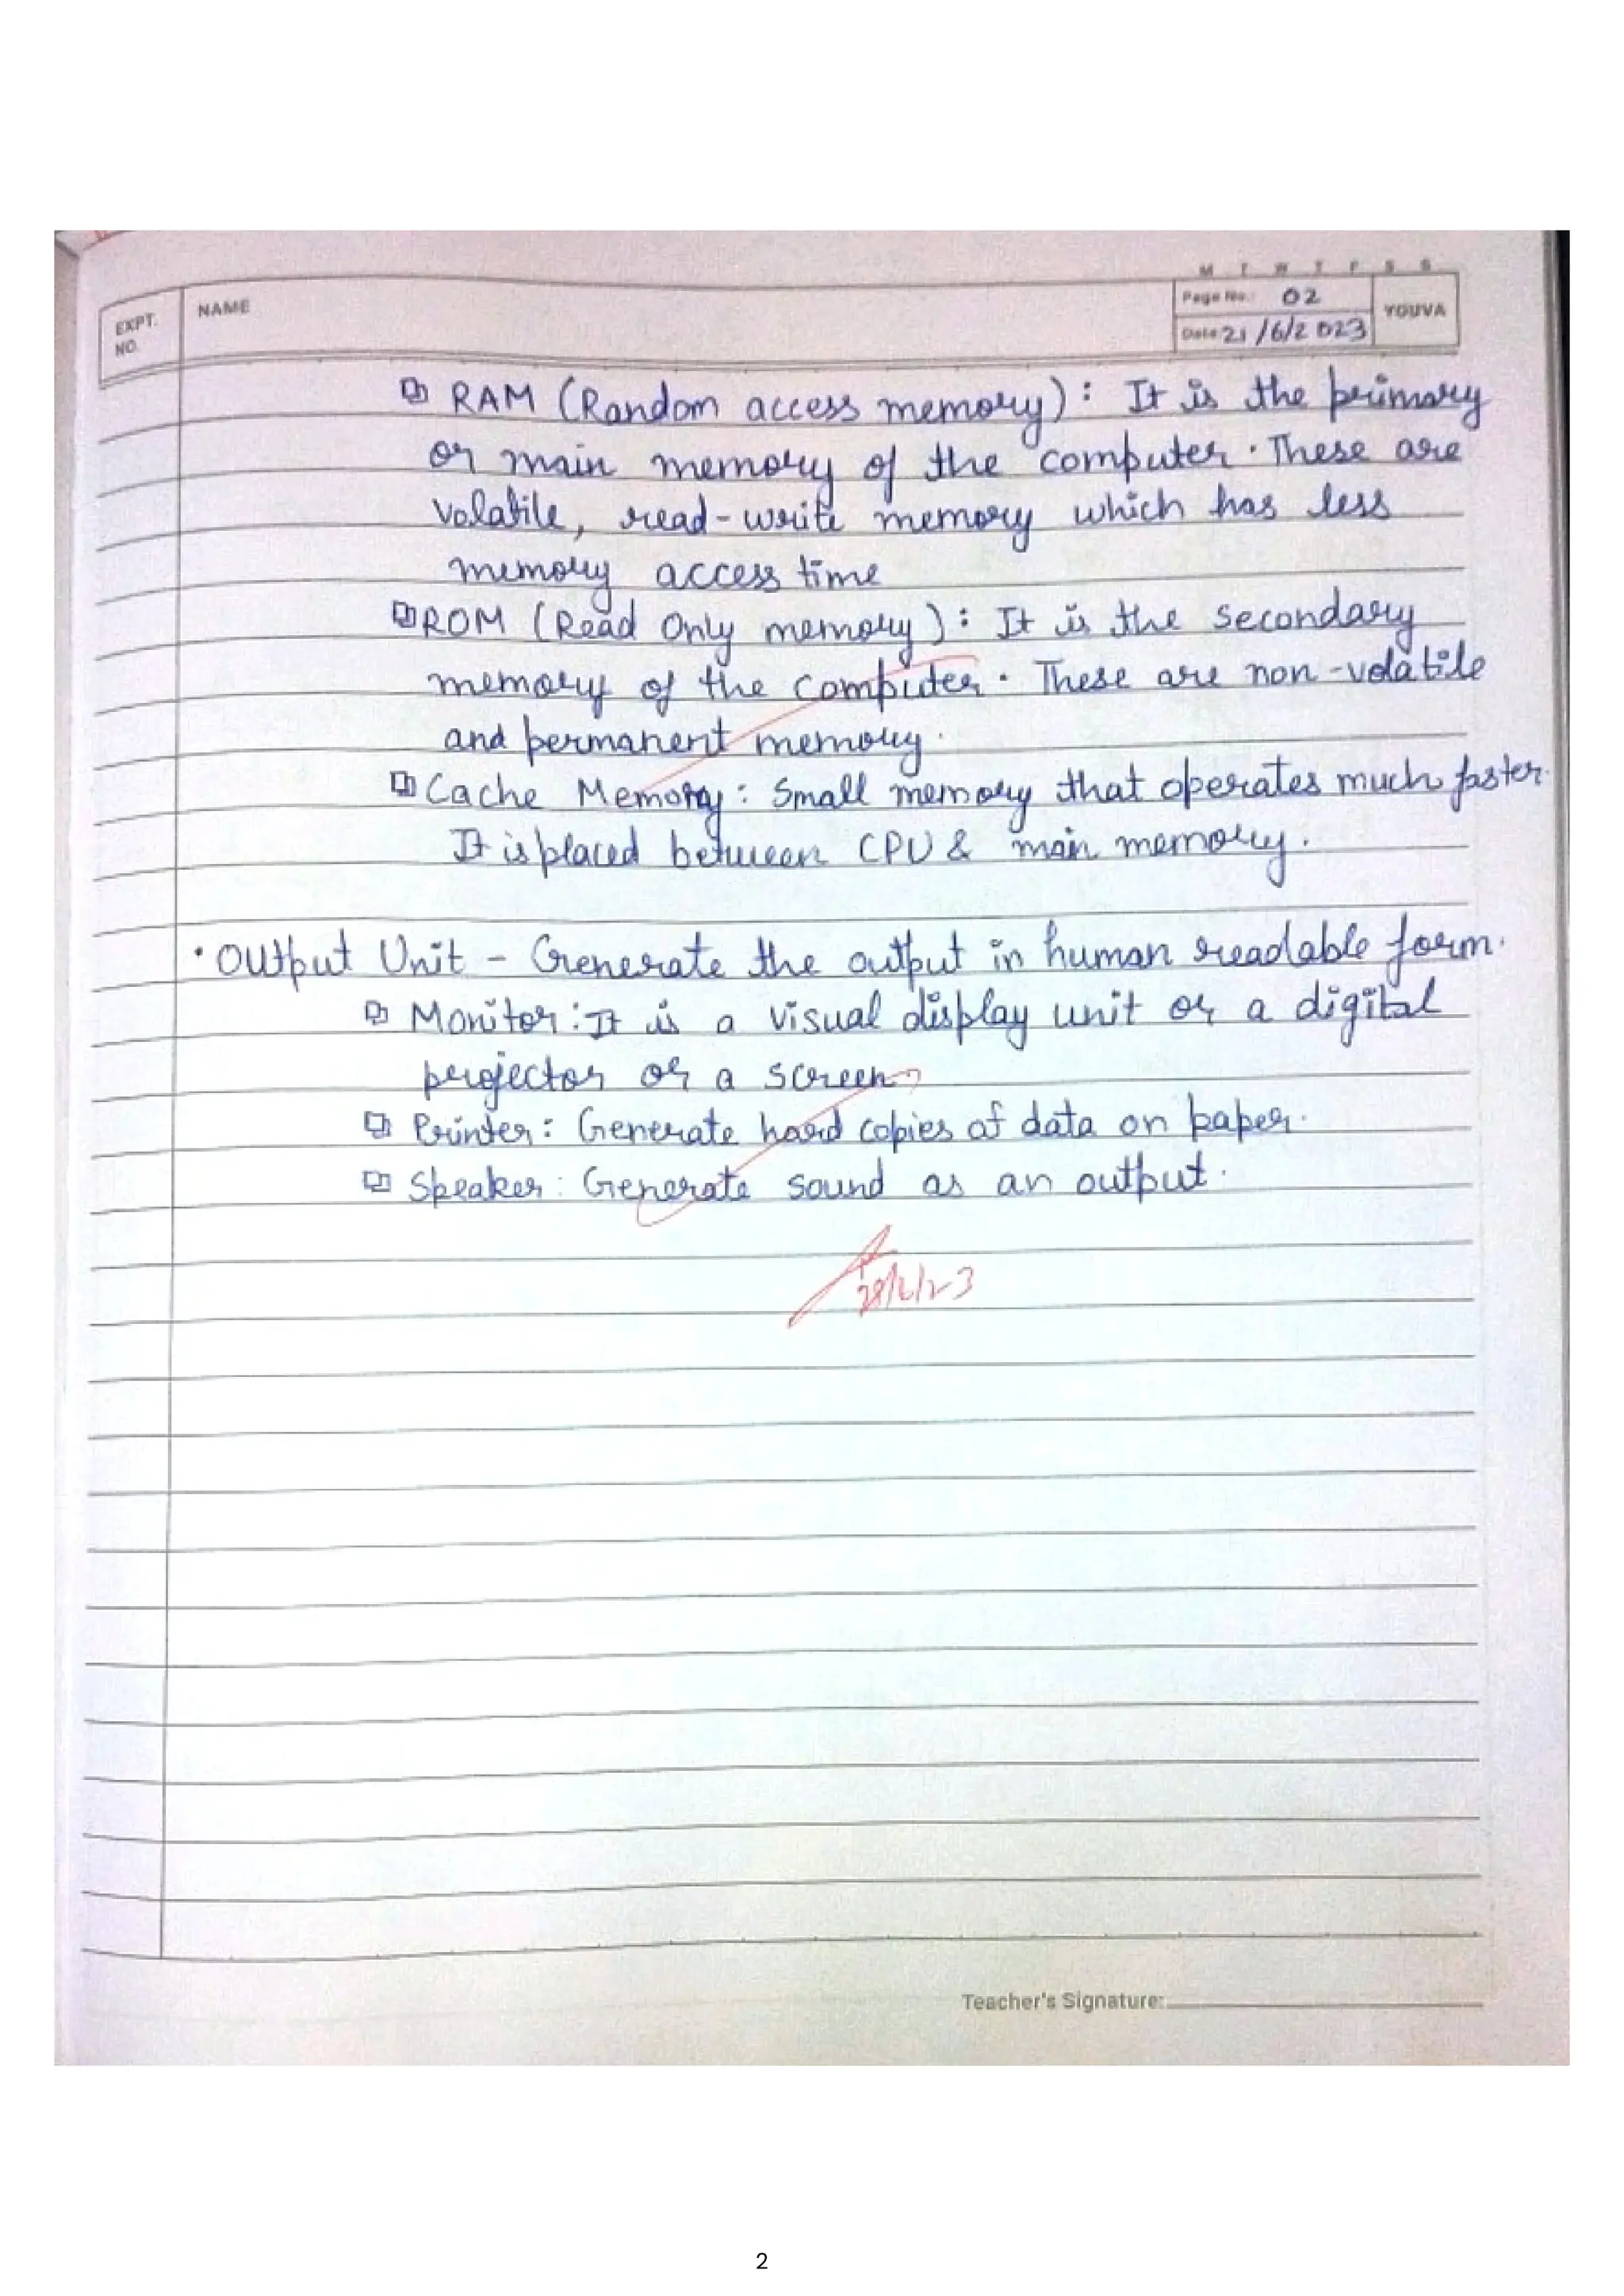 M T W T F S S
EXPT. NO.
NAME
Page No.: 02
Date: 21/6/2023
YOUVA
RAM (Random access memory) : It is the primary
or main memory of the computer. These are
volatile, read-write memory which has less
memory access time
ROM (Read Only memory) : It is the secondary
memory of the computer. These are non-volatile
and permanent memory.
Cache Memory : Small memory that operates much faster.
It is placed between CPU & main memory.
• Output Unit - Generate the output in human readable form.
Monitor : It is a visual display unit or a digital
projector or a screen
Printer : Generate hard copies of data on paper.
Speaker : Generate sound as an output.
28/6/23
Teacher's Signature:
2